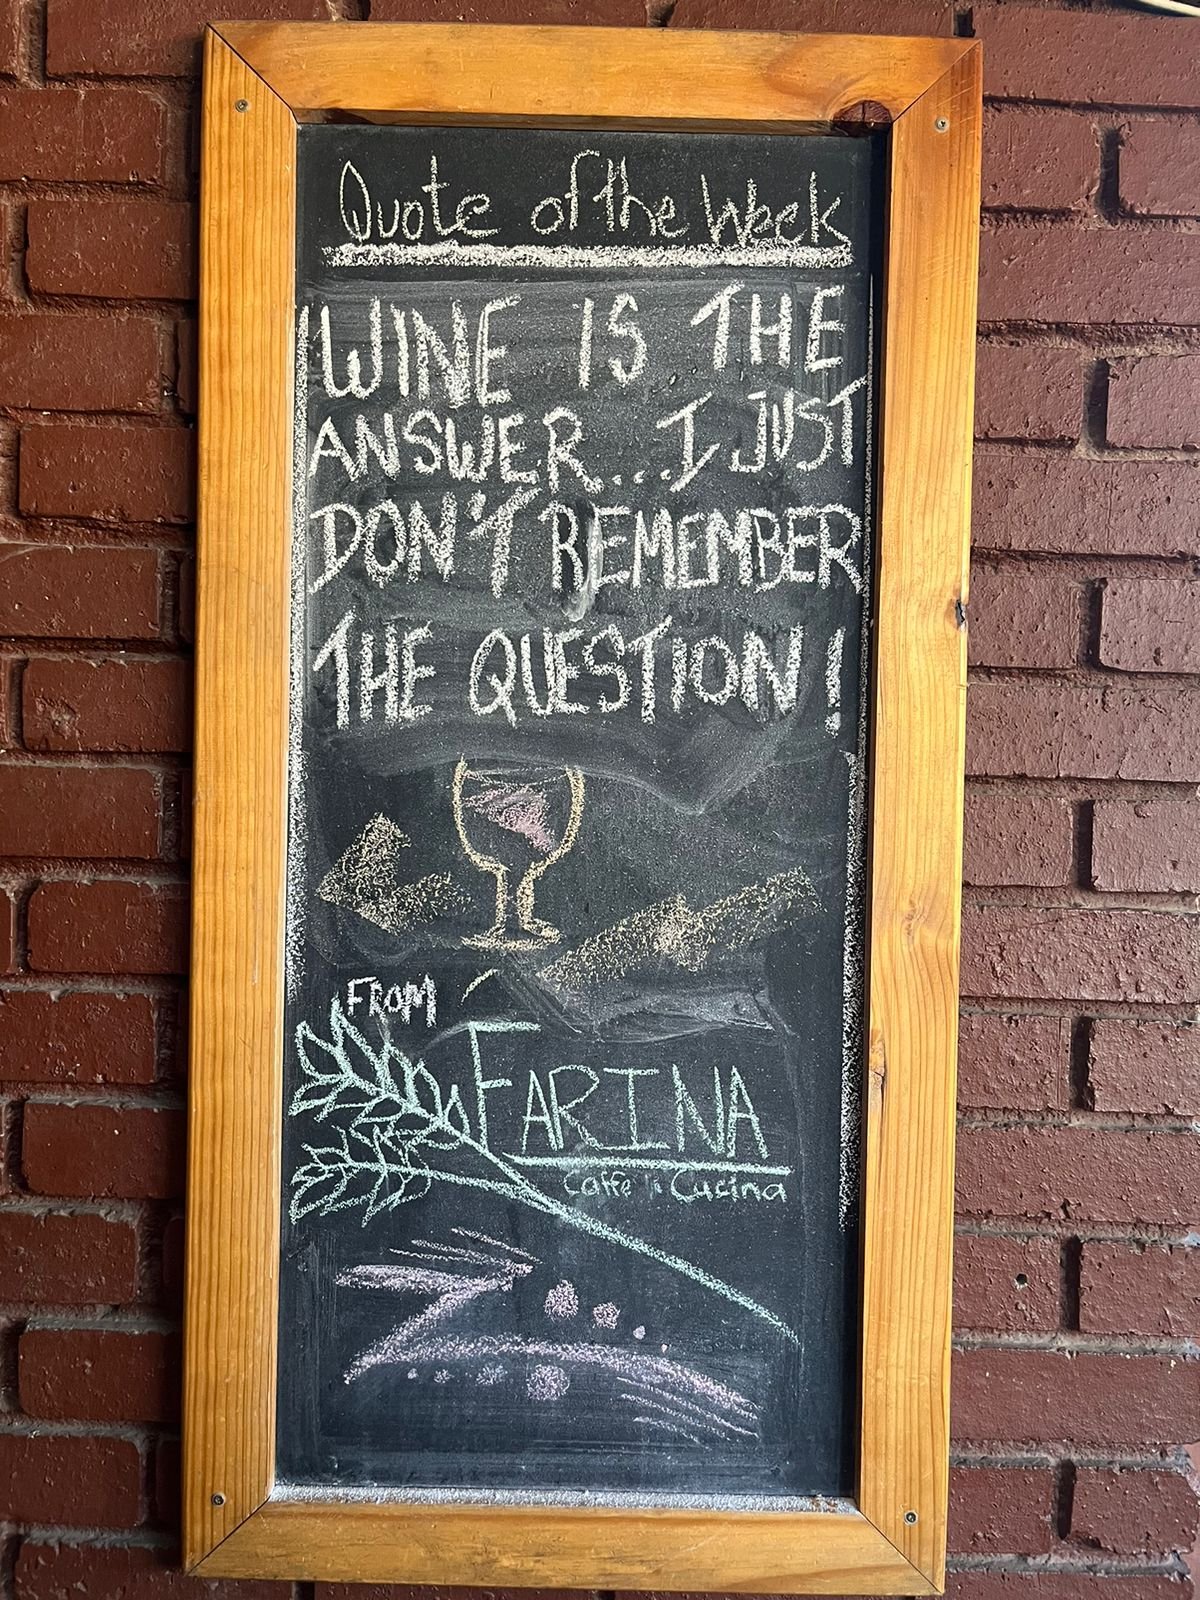 Quote of the Week
WINE IS THE
ANSWER...I JUST
DON'T REMEMBER
THE QUESTION!
FROM
FARINA
Caffe in Cucina